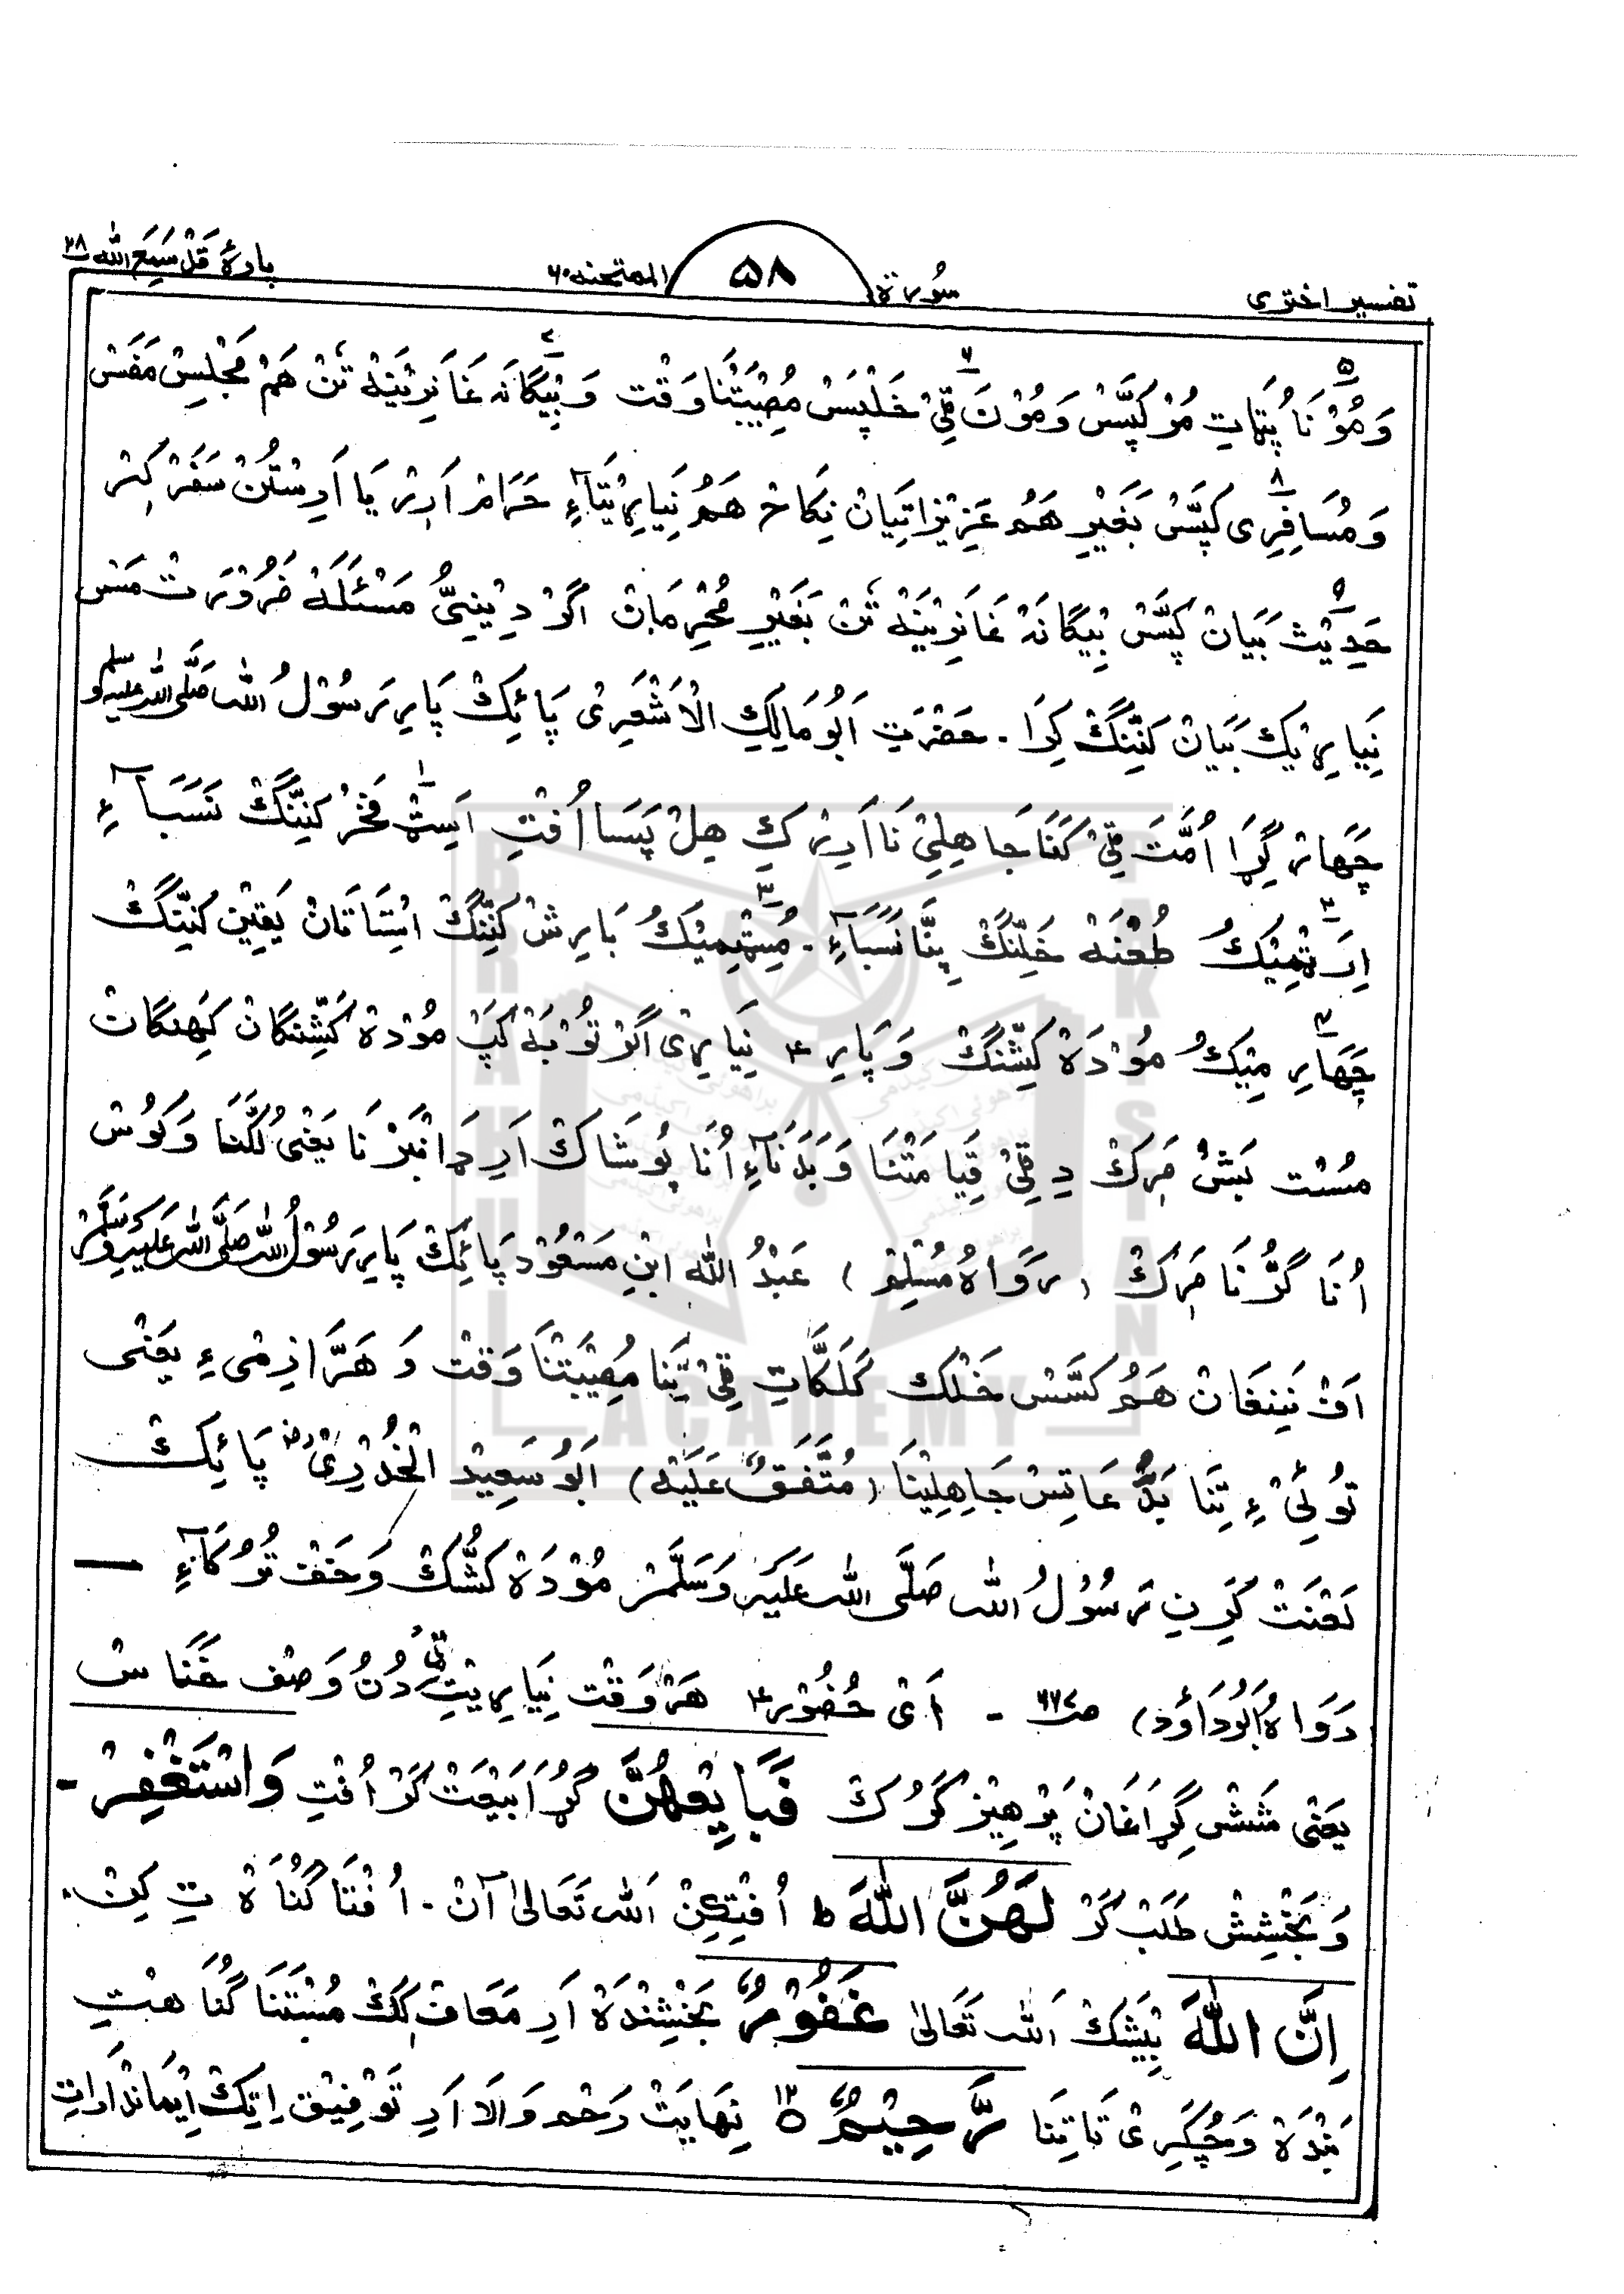 تفسیر اختری سُورة ۵۸ الممتحنه ۶۰ پارۂ قَدْ سَمِعَ اللہ ۲۸
وَمُوْنَا پُٹَاتِ مُوْ کپَّسْ وَمُوْنَ ٹیْ خَلْپَسْ مُصِیْبَتْنَا وَقْت وَبیْگَانَه غَا نَرِیْنَه تَنْ هَمْ مَجْلِسْ مَفَسْ
وَمُسَافِرِی کپَّسْ بَغَیْرِ هَمُ عَزِیْزَاتِیَانْ نِکَاحْ هَمُ نِیَارِیْتَآءِ حَرَامْ اَرِیْر یَا اَرِسْتُنْ سَفَرْ کِتْر
حَدِیْث بَیَانْ کپَّسْ بِیْگَانَهْ غَانَرِیْنَهْ تَنْ بَغَیْرِ مُحْرِمَانْ اَگَرْ دِیْنِیُّ مَسْئَلَهْ ضُرُوْرَتْ مَسْ
نِیَارِیْکْ بَیَانْ کَنِّنْگْ کِرَا ۔ حَضْرَتِ اَبُوْمَالِكِ الْاَشْعَرِیْ پَائِکْ پَارِ رَسُوْلُ اللہ صَلَّی اللہ علیہ وسلم
چَهَارْ گِرَا اُمَّتَ ٹیْ کَنَا جَاهِلِیْ نَا اَرِیْر کِ هِلْ پَسَا اُفْتِ اَسِٹْ فَخْرْ کنِّنْگْ نَسَبَآءِ
اِرَٹْمِیْکُ طُعْنَهْ خَلِّنْگْ پِنَّا نَسَبَآءِ ۔ مُسِٹْمِیْکُ بَارِشْ کنِّنْگْ اسْتَاتَانْ یَقِیْنْ کنِّنْگْ
چَهَارِ مِیْکُ مُوْدَهْ کشِّنْگْ وَ پَارِ ؏ نِیَارِیْ اَگَرْ تُوْبَهْ کپْ مُوْدَهْ کَشِّنْگَانْ کَهِنْگَانْ
مُسْت بَشْ مَرِکْ دِ ٹیْ قِیَامَتْنَا وَبَدَنَآءِ اُنَا پُوْشَاکْ اَرِ دَامْبَرْنَا یَعْنِیْ لُکَّنَا وَ کَوْسْ
اُنَا گَرُّنَا مَرِکْ ( رَوَاهُ مُسْلِمْ ) عَبْدُ اللہ ابْنِ مَسْعُوْد پَائِکْ پَارِ رَسُوْلُ اللہ صَلَّی اللہ عَلَیْهِ وَسَلَّمْ
اَفْ نَنِغَانْ هَمُ کَسَّسْ خَلْکْ کَلَکَّاتِ ٹیْ تِنَا مُصِیْبَتْنَا وَقْتْ وَ هَرَّا ذِمِیْءِ یَعْنِیْ
تَوْلِیْ ءِ تِنَا بَدُّ عَاتِسْ جَاهِلِیْنَا (مُتَّفَقٌ عَلَیْهْ) اَبُوْ سَعِیْدِ الْخُدْرِیْ رض پَائِکْ
لَعْنَتْ کَرِنِ رَسُوْلُ اللہ صَلَّی اللہ عَلَیْہ وَسَلَّمْ مُوْدَهْ کشُّکْ وَ خَفْ تُرُکَآءِ
رَوَاهُ اَبُوْدَاوٗد) ص ۶۶۷ ۔ اَیْ حُضُوْر ؏ هَرْ وَقْت نِیَارِیْتِ ٹیْ دُنُ وَصْف خَنَاسْ
یَعْنِیْ شَشْ گِرَاغَانْ پَرْهِیْز کَرُکْ فَبَایِعْهُنَّ گُڑَا بَیْعَتْ کَرْ اُفْتِ وَاسْتَغْفِرْ
وَ بَخْشِشْ طَلَبْ کَرْ لَهُنَّ اللّٰهَ ط اُفْتِکِنْ اَللہ تَعَالٰی آنْ ۔ اُفْتَا گُنَاهْ تِ کِنْ
اِنَّ اللّٰهَ بِیْشَکْ اَللہ تَعَالٰی غَفُوْرٌ بَخْشِنْدَهْ اَرِ مَعَافْ کِکْ مُسْتَنَا گُنَاهْتِ
بَنْدَهْ وَ چُکَرِیْ تَاتِنَا رَّحِیْمٌ ۱۲ نِهَایَتْ رَحْم وَالَا اَرِ تَوْفِیْق اِتِکْ اِیْمَانْدَارَاتِ
BRAHUI ACADEMY PAKISTAN